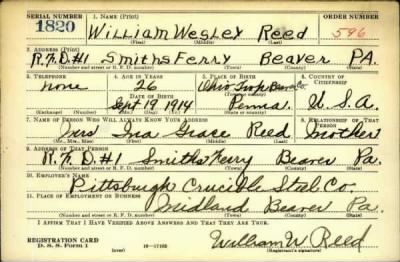 SERIAL NUMBER 1. NAME (Print) ORDER NUMBER
1820 William Wesley Reed 596
(First) (Middle) (Last)
2. ADDRESS (Print)
R.F.D.#1 Smiths Ferry Beaver PA.
(Number and street or R. F. D. number) (Town) (County) (State)
3. TELEPHONE 4. AGE IN YEARS 5. PLACE OF BIRTH 6. COUNTRY OF CITIZENSHIP
none 26 Ohio Twp Beaver Co.
DATE OF BIRTH (Town or county)
Sept 19 1914 Penna. U.S.A.
(Exchange) (Number) (Mo.) (Day) (Yr.) (State or country)
7. NAME OF PERSON WHO WILL ALWAYS KNOW YOUR ADDRESS 8. RELATIONSHIP OF THAT PERSON
Mrs Ina Grace Reed Mother
(Mr., Mrs., Miss) (First) (Middle) (Last)
9. ADDRESS OF THAT PERSON
R.F.D.#1 Smiths Ferry Beaver Pa.
(Number and street or R. F. D. number) (Town) (County) (State)
10. EMPLOYER'S NAME
Pittsburgh Crucible Steel Co.
11. PLACE OF EMPLOYMENT OR BUSINESS
Midland Beaver Pa.
(Number and street or R. F. D. number) (Town) (County) (State)
I AFFIRM THAT I HAVE VERIFIED ABOVE ANSWERS AND THAT THEY ARE TRUE.
REGISTRATION CARD
D. S. S. Form 1 (over) 16-17105 William W Reed
(Registrant's signature)